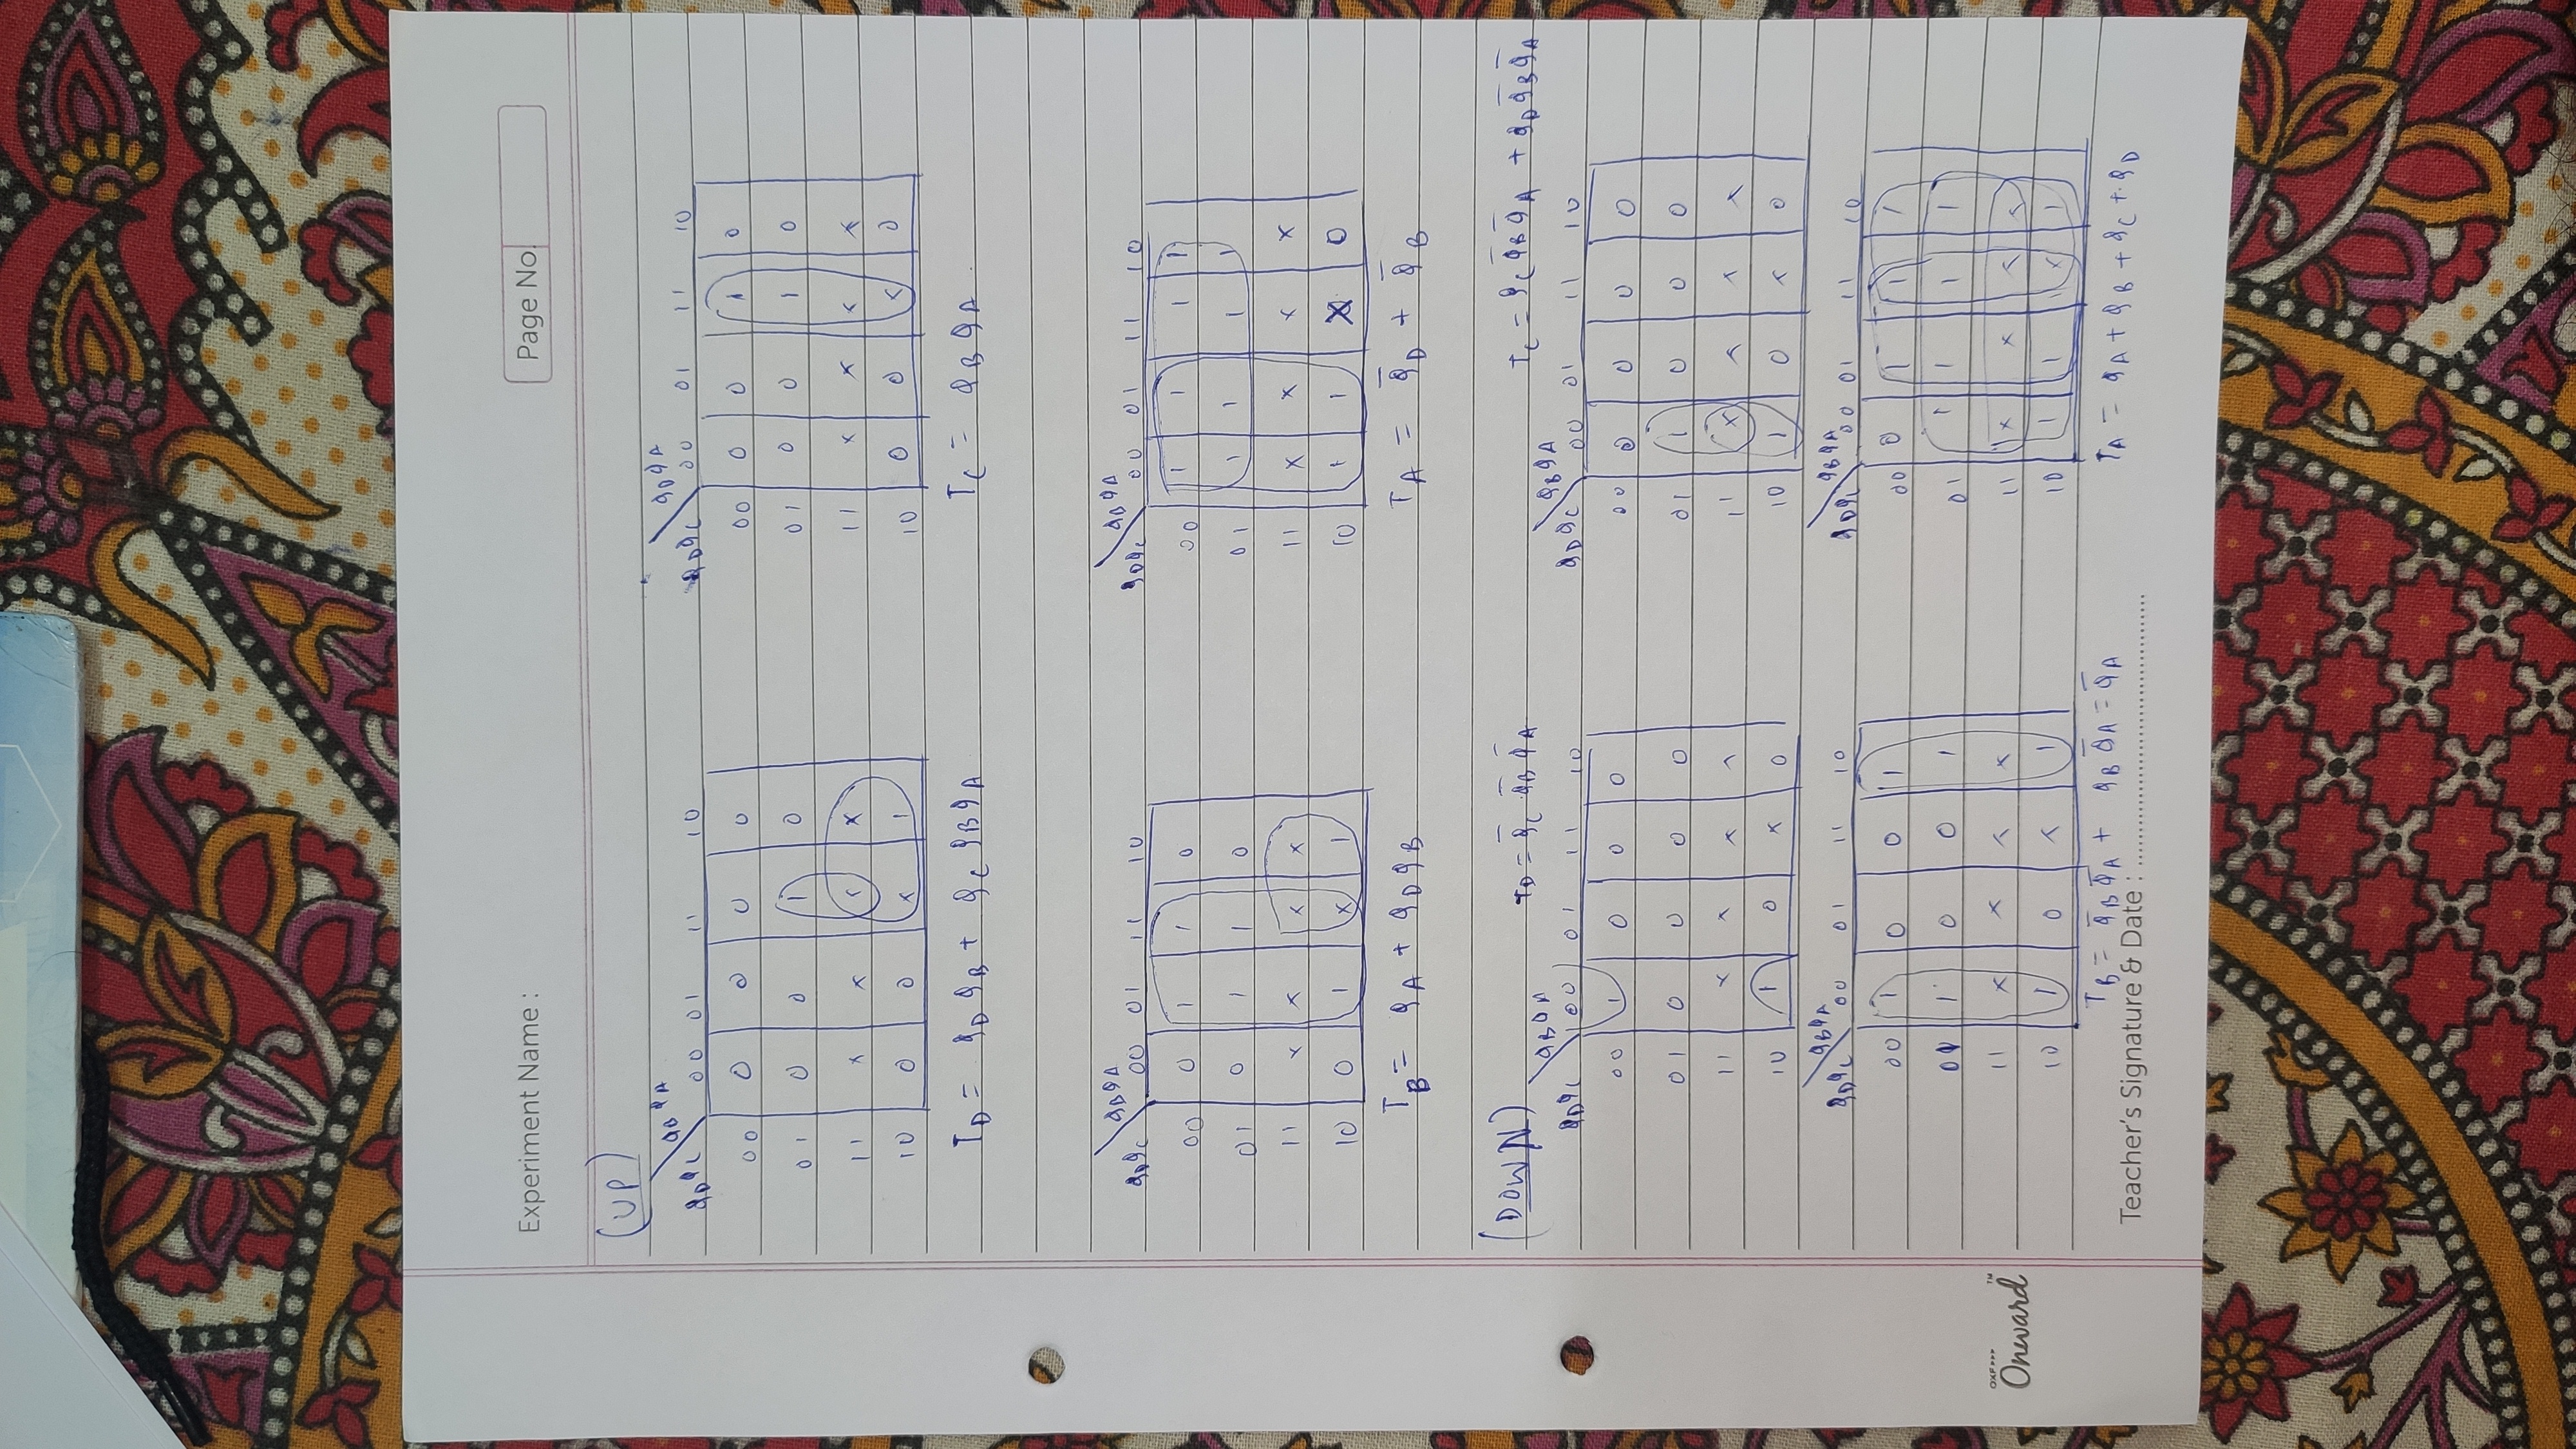 Experiment Name :
Page No.
(UP)
qB qA
qD qC 00 01 11 10
00 0 0 0 0
01 0 0 1 0
11 x x x x
10 0 0 x 1
TD = qD qB + qC qB qA
qD qA
qD qC 00 01 11 10
00 0 0 1 0
01 0 0 1 0
11 x x x x
10 0 0 x 0
TC = qB qA
qB qA
qD qC 00 01 11 10
00 0 1 1 0
01 0 1 1 0
11 x x x x
10 0 1 x 1
TB = qA + qD qB
qB qA
qD qC 00 01 11 10
00 1 1 1 1
01 1 1 1 1
11 x x x x
10 1 1 x 0
TA = q̄D + q̄B
(DOWN)
TD = q̄C q̄B q̄A
qB qA
qD qC 00 01 11 10
00 1 0 0 0
01 0 0 0 0
11 x x x x
10 1 0 x 0
TC = qC q̄B q̄A + qD q̄B q̄A
qB qA
qD qC 00 01 11 10
00 0 0 0 0
01 1 0 0 0
11 x x x x
10 1 0 x 0
qB qA
qD qC 00 01 11 10
00 1 0 0 1
01 1 0 0 1
11 x x x x
10 1 0 x 1
TB = q̄B q̄A + qB q̄A = q̄A
qB qA
qD qC 00 01 11 10
00 0 1 1 1
01 1 1 1 1
11 x x x x
10 1 1 x 1
TA = qA + qB + qC + qD
Onward™
Teacher's Signature & Date :